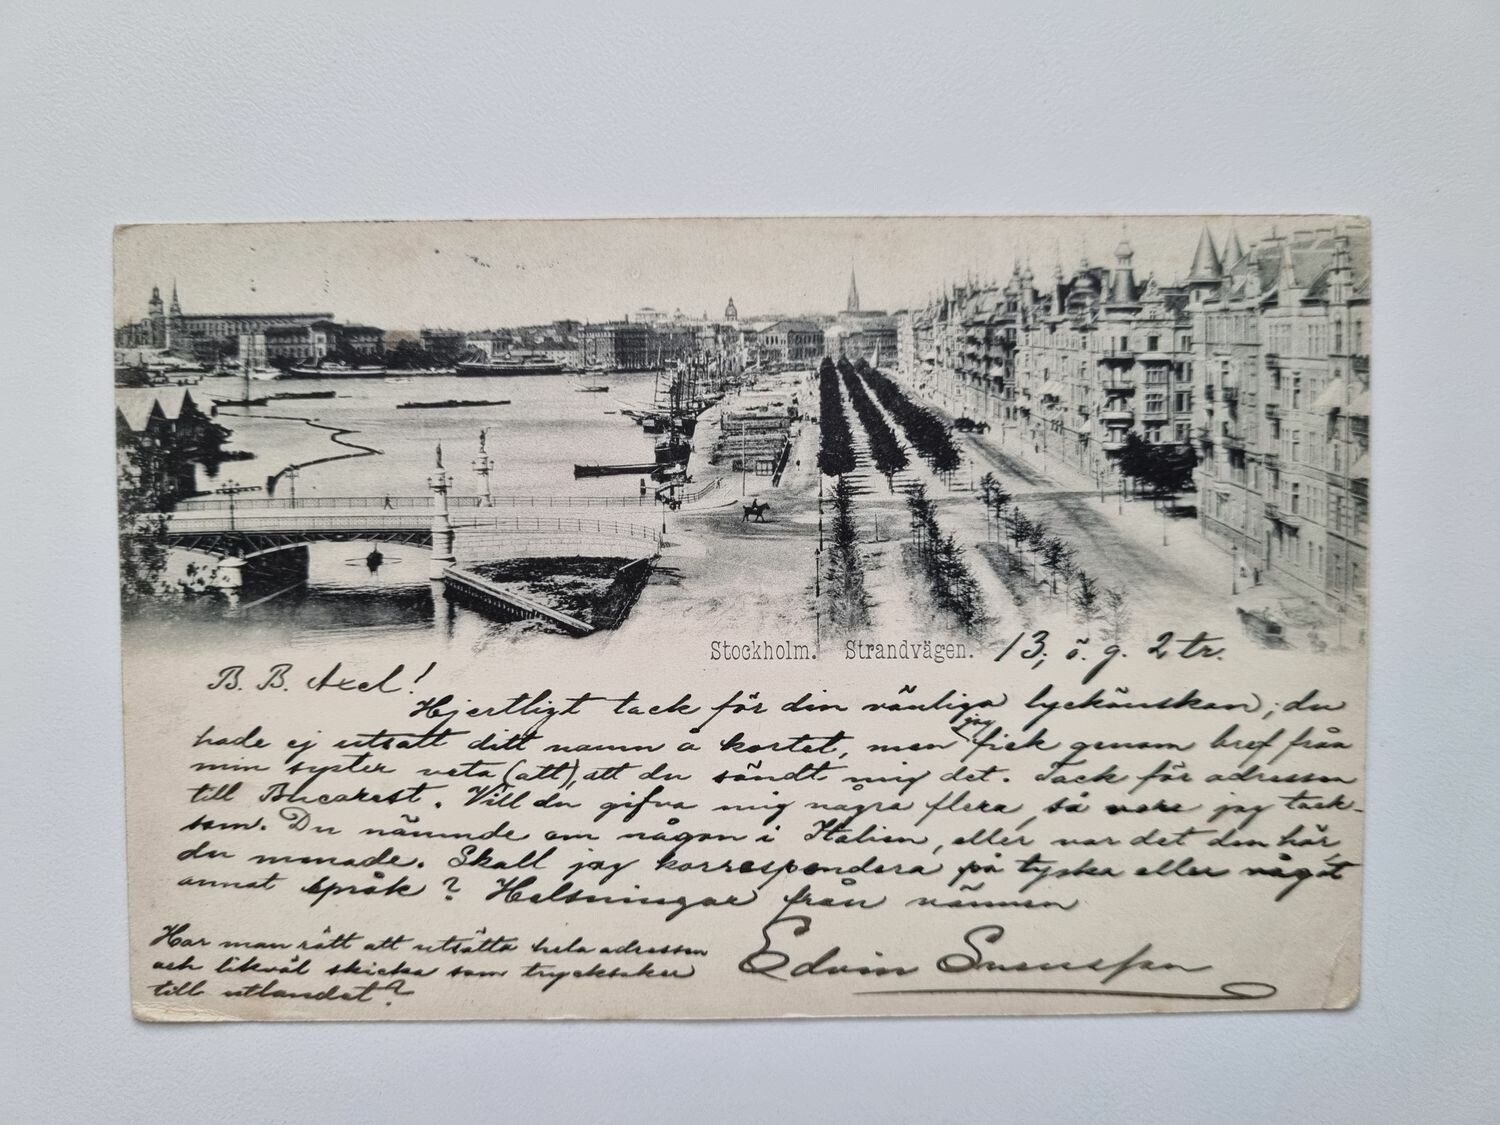 Stockholm. Strandvägen. 13, ö. g. 2 tr.
B. B. Axel!
Hjertligt tack för din vänliga lyckönskan; du
hade ej utsatt ditt namn å kortet, men jag fick genom bref från
min syster veta (att), att du sändt mig det. Tack för adressen
till Bucarest. Vill du gifva mig några flera, så vore jag tack-
sam. Du nämnde om någon i Italien, eller var det den här,
du menade. Skall jag korrespondera på tyska eller något
annat språk? Helsningar från vännen
Edvin Svensson
Har man rätt att utsätta hela adressen
och likväl skicka som trycksaker
till utlandet?